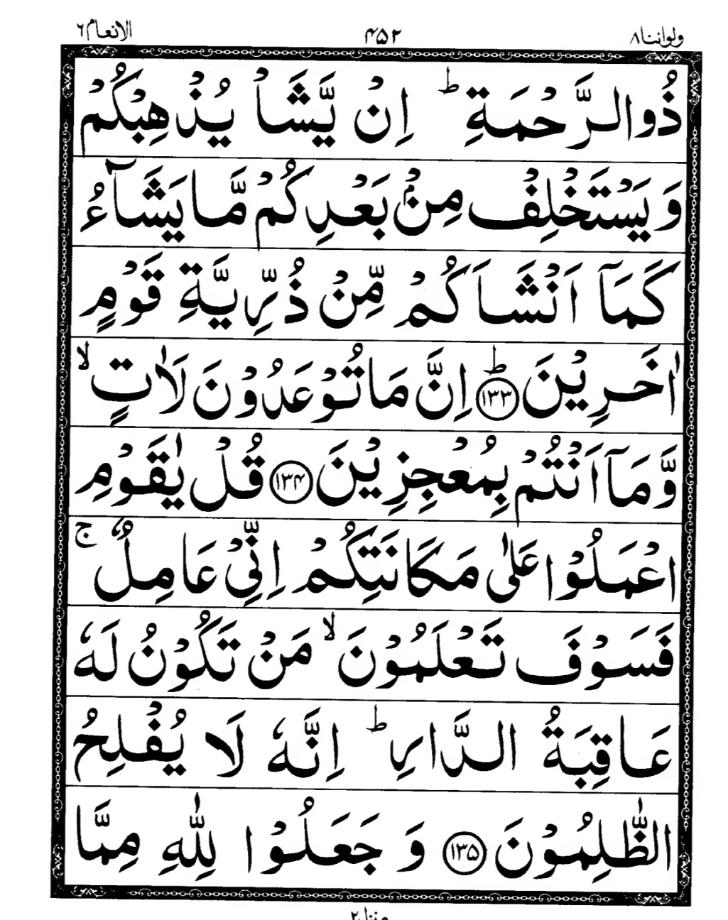 ولواننا۸ ۴۵۲ الانعام۶
ذُوالرَّحْمَةِ ؕ اِنْ يَّشَاْ يُذْهِبْكُمْ
وَيَسْتَخْلِفْ مِنْۢ بَعْدِكُمْ مَّا يَشَآءُ
كَمَاۤ اَنْشَاَكُمْ مِّنْ ذُرِّيَّةِ قَوْمٍ
اٰخَرِيْنَ ؕ﴿۱۳۳﴾ اِنَّ مَا تُوْعَدُوْنَ لَاٰتٍ ۙ
وَّمَاۤ اَنْتُمْ بِمُعْجِزِيْنَ ﴿۱۳۴﴾ قُلْ يٰقَوْمِ
اعْمَلُوْا عَلٰى مَكَانَتِكُمْ اِنِّيْ عَامِلٌ ۚ
فَسَوْفَ تَعْلَمُوْنَ ۙ مَنْ تَكُوْنُ لَهٗ
عَاقِبَةُ الدَّارِ ؕ اِنَّهٗ لَا يُفْلِحُ
الظّٰلِمُوْنَ ﴿۱۳۵﴾ وَ جَعَلُوْا لِلّٰهِ مِمَّا
منزل۲